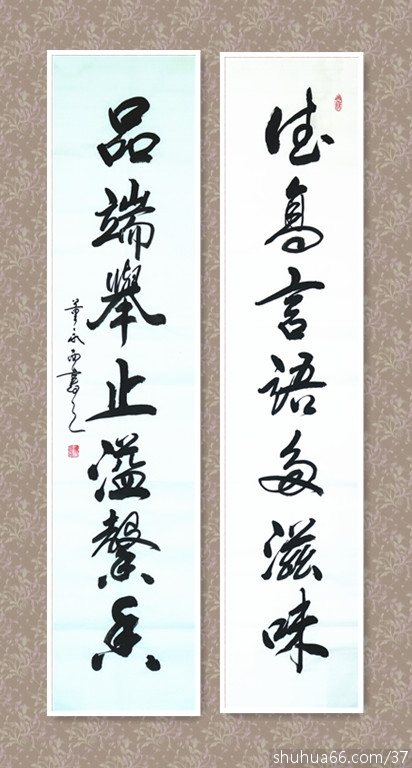 德高言語多滋味
品端舉止溢馨香
董永西書之
shuhua66.com/37